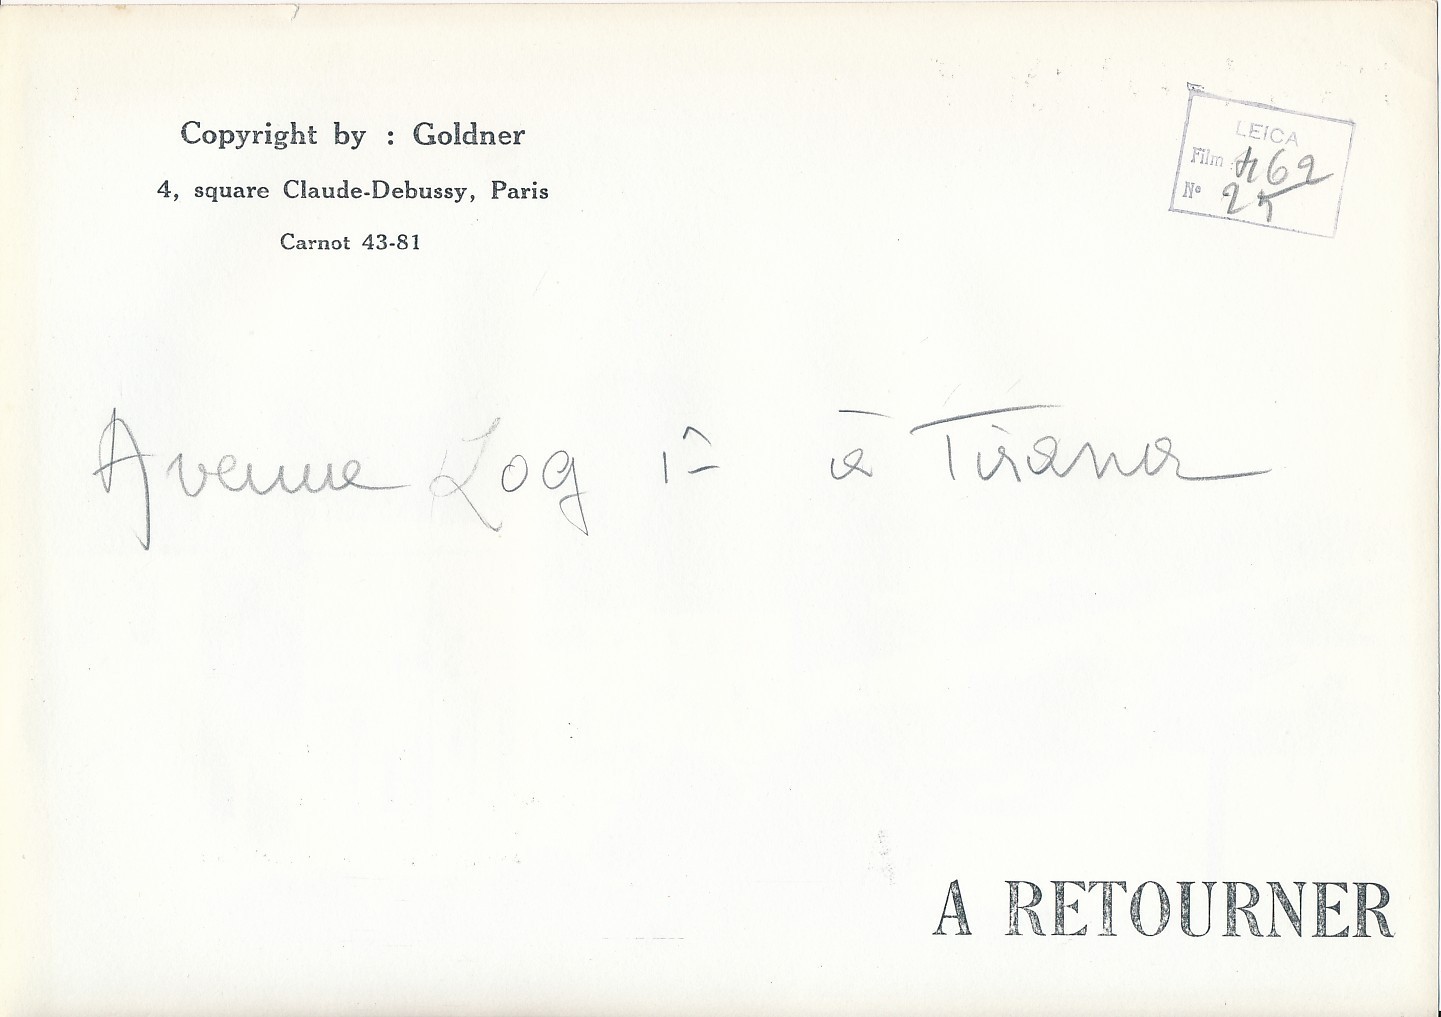 Copyright by : Goldner
4, square Claude-Debussy, Paris
Carnot 43-81
LEICA
Film 462
N° 25
Avenue Zog 1er à Tirana
A RETOURNER